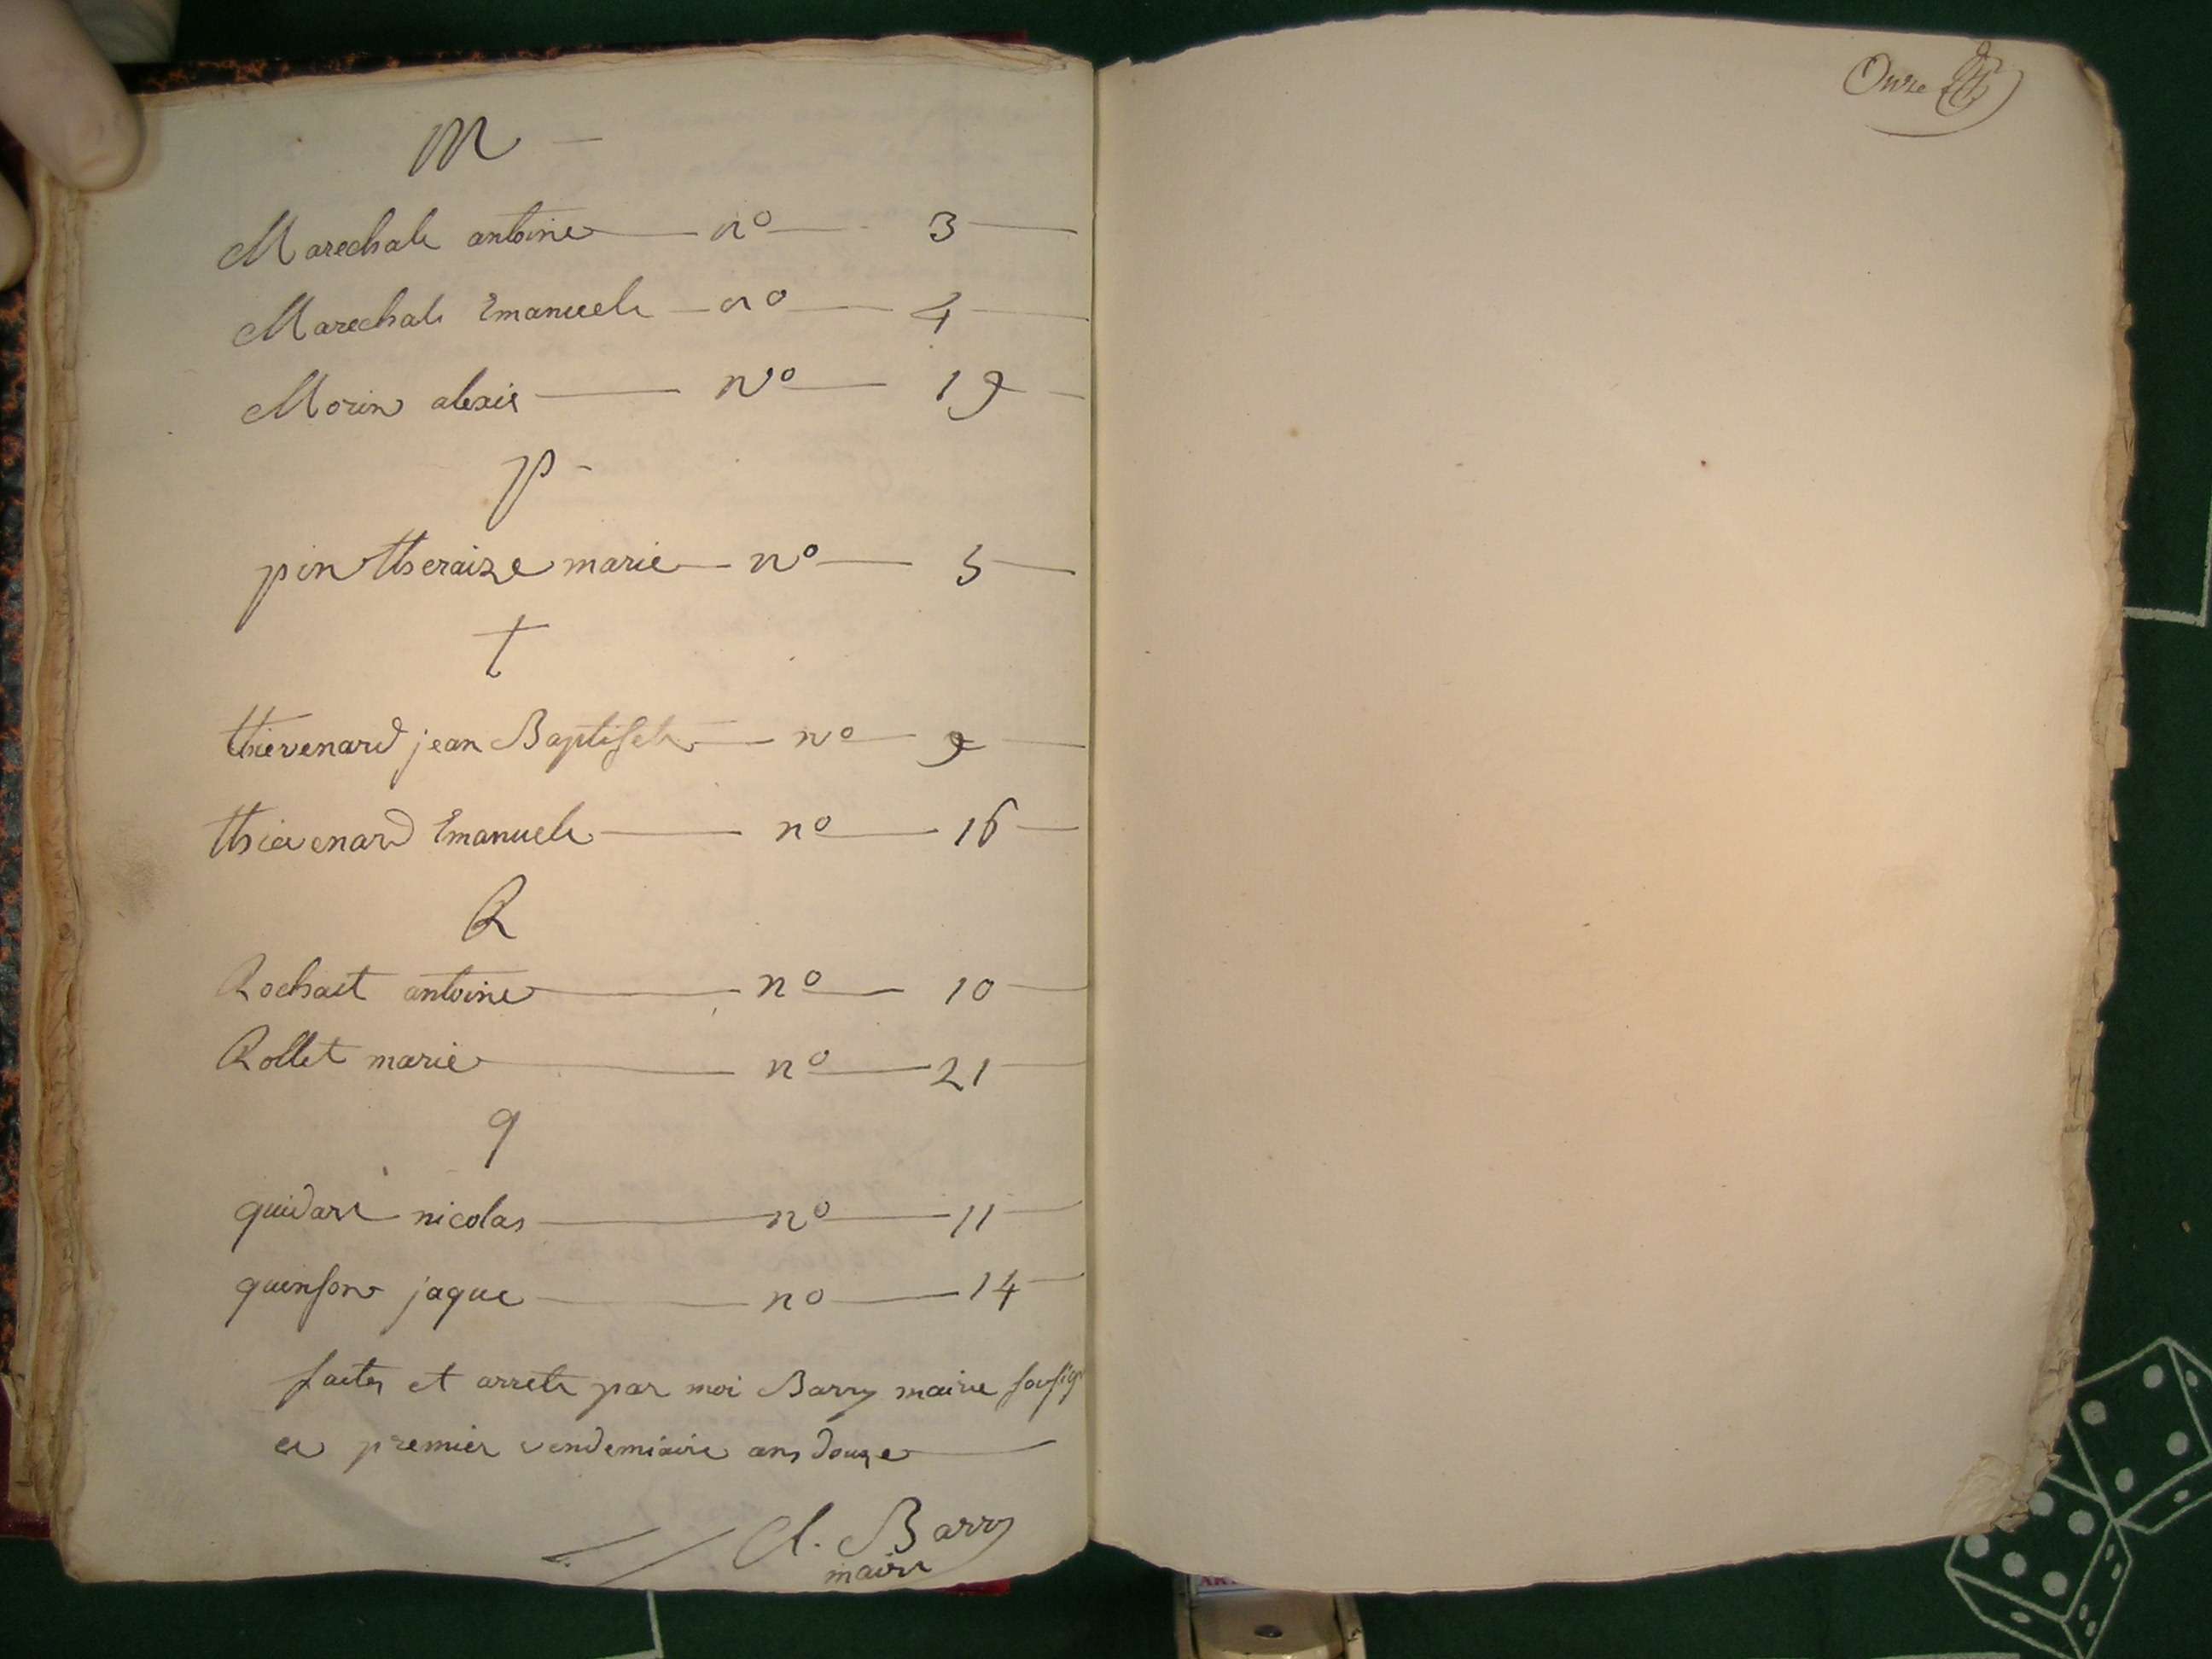 M -
Marechale antoine — n° — 3 —
Marechale Emanuele — n° — 4 —
Morin alexis — n° — 19 —
P -
pin theraize marie — n° — 5 —
t
thievenard jean Baptiste — n° — 9 —
thievenard Emanuele — n° — 16 —
R
Rochait antoine — n° — 10 —
Rollet marie — n° — 21 —
q
nicolas — n° — 11 —
quinson jaque — n° — 14 —
faites et arrete par moi Barry maire sousig
ce premier vendemiaire ans douze —
Cl. Barry
maire
Onze